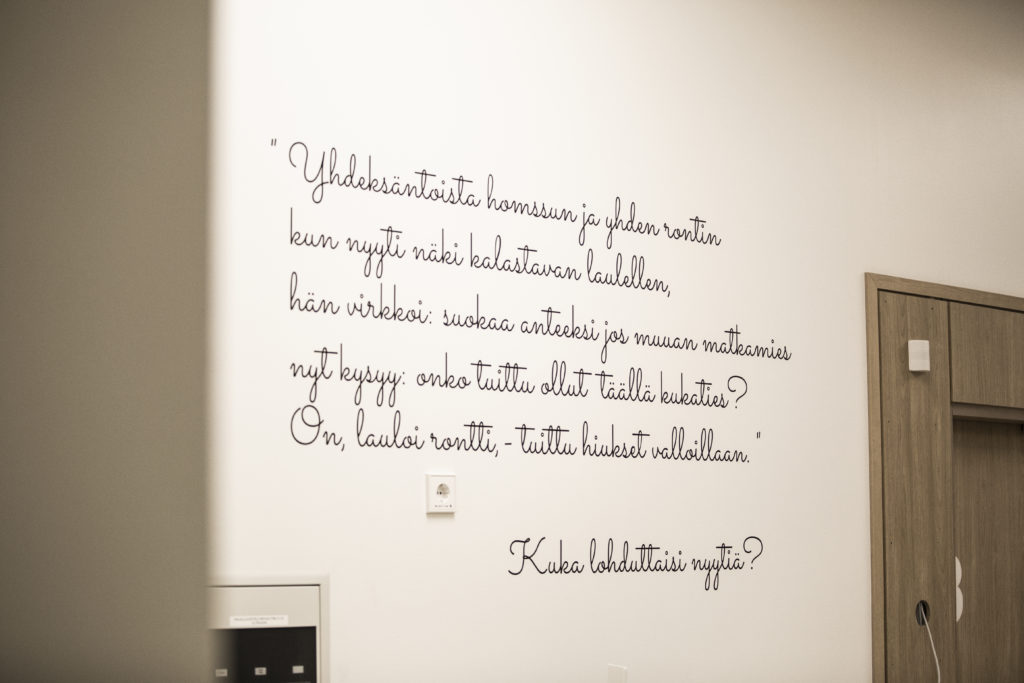 " Yhdeksäntoista homssun ja yhden rontin
kun nyyti näki kalastavan laulellen,
hän virkkoi: suokaa anteeksi jos muuan matkamies
nyt kysyy: onko tuittu ollut täällä kukaties?
On, lauloi rontti, - tuittu hiukset valloillaan."
Kuka lohduttaisi nyytiä?